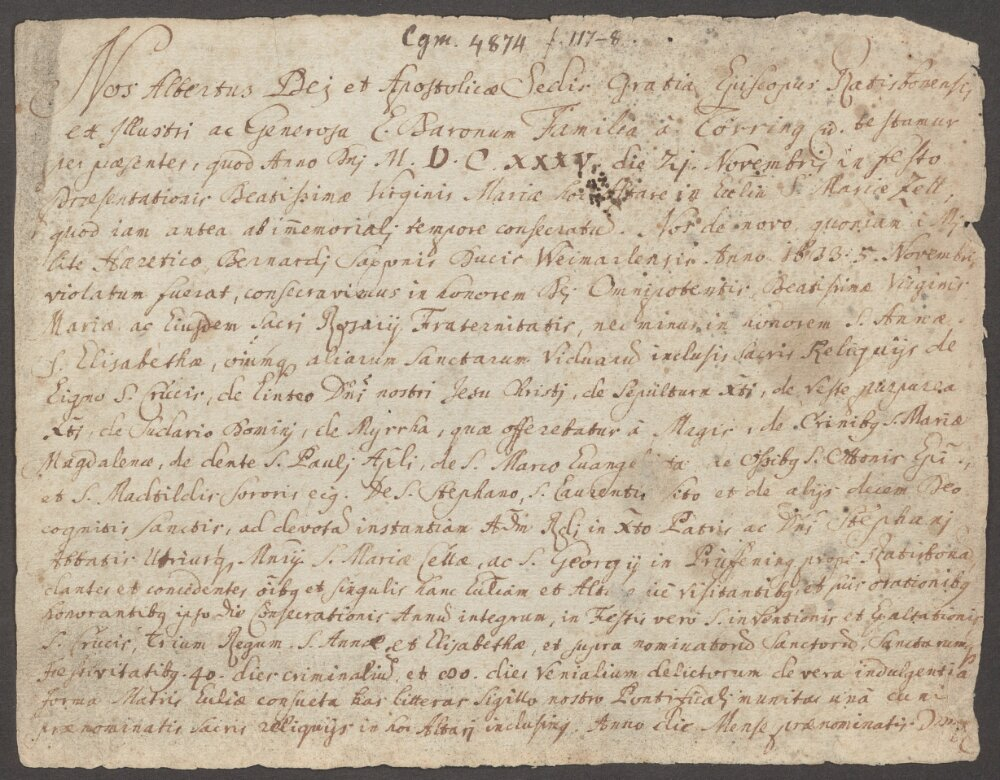 Cgm. 4874 f. 117-8.
Nos Albertus Dej et Apostolicæ Sedis Gratia Episcopus Ratisbonensis
ex Illustri ac Generosa L. Baronum Familia à Törring testamur
per præsentes, quod Anno Dnj M. D. C. XXXV. die 21. Novembris in festo
Præsentationis Beatissimæ Virginis Mariæ hoc Altare in S. Mariæ Zell,
quod iam antea ab im̄emorialj tempore consecratū. Nos de novo, quoniam à Mi
lite Hæretico Bernardj Saxonis Ducis Weimariensis Anno 1633. 5. Novembris
violatum fuerat, consecravimus in honorem Dej Omnipotentis, Beatissimæ Virginis
Mariæ ac Eiusdem Sacri Rosarij Fraternitatis, nec minus in honorem S. Annæ
S. Elisabethæ, om̄iumq aliarum Sanctarum Viduarū inclusis sacris Reliquijs de
Ligno S. Crucis, de Linteo Dnī nostri Jesu Christj, de Sepultura Xtī, de Veste purpurea
Xtī, de Sudario Dominj, de Myrrha, quæ offerebatur à Magis, de Crinibq S. Mariæ
Magdalenæ, de dente S. Paulj Apli, de S. Marco de Ossibq S. Ottonis
et S. Machtildis Sororis eiq. De S. Stephano, S. Laurentio et de alijs decem Deo
cognitis Sanctis, ad devotā instantiam Adm̄ Rdj in Xto Patris ac Dnj Stephanj
Abbatis Utriusq S. Mariæ Cellæ, ac S. Georgij in Prüffening prope Ratisbonā
dantes et concedentes om̄ibq et singulis hanc Ecclīam et visitantibq et suis orationibq
honorantibq ipso die Consecrationis Annū integrum, in Festis vero S. inventionis et Exaltationis
S. Crucis, trium Regum. S. Annæ et Elisabethæ, et supra nominatorū Sanctorū, Sanctarumq
festivitatibq 40. dies criminaliū, et 100. dies Venialium delictorum de vera indulgentia
forma Matris Ecclīæ consueta has litteras Sigillo nostro Pontificalj munitas unà cum
prænominatis Sacris reliquijs in hoc Altarj inclusimq. Anno die Mense prænominatis